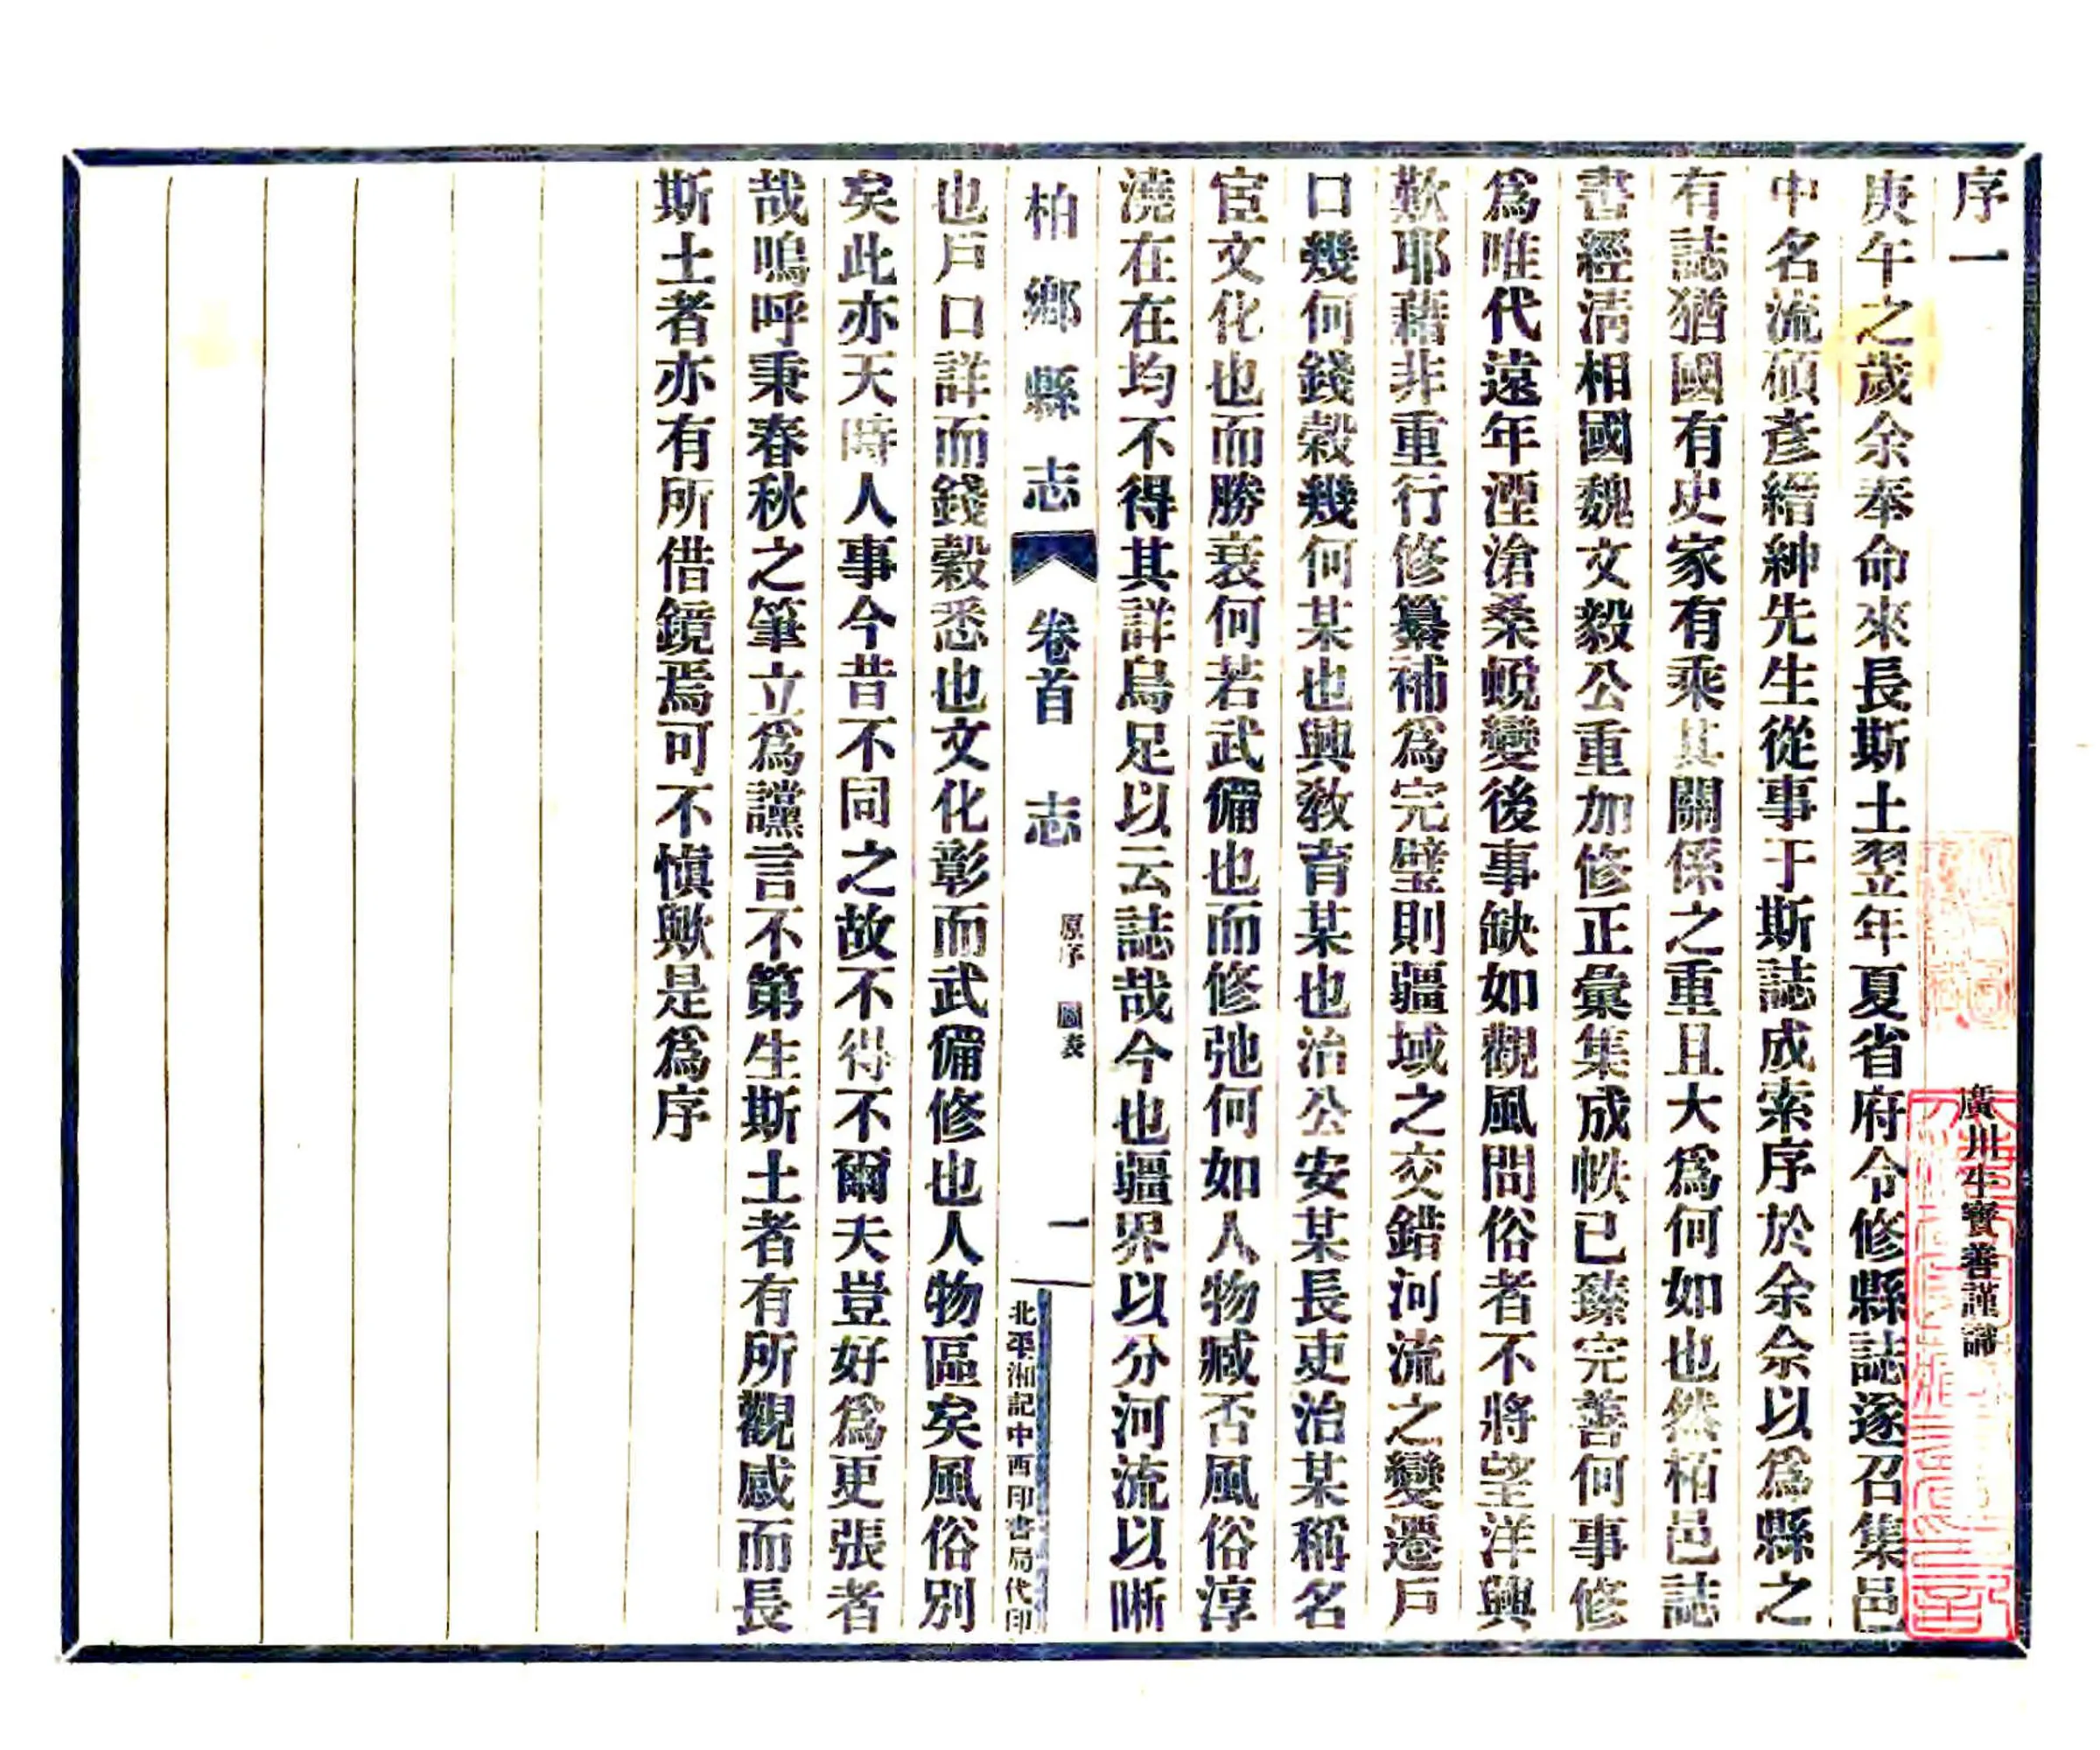 序一
廣川牛寶善謹識
庚午之歲余奉命來長斯土翌年夏省府令修縣誌遂召集邑
中名流碩彥縉紳先生從事于斯誌成索序於余余以爲縣之
有誌猶國有史家有乘其關係之重且大爲何如也然柏邑誌
書經清相國魏文毅公重加修正彙集成帙已臻完善何事修
爲唯代遠年湮滄桑蛻變後事缺如觀風問俗者不將望洋興
歎耶藉非重行修纂補爲完璧則疆域之交錯河流之變遷戶
口幾何錢穀幾何某也興教育某也治公安某長吏治某稱名
宦文化也而勝衰何若武備也而修弛何如人物臧否風俗淳
澆在在均不得其詳烏足以云誌哉今也疆界以分河流以晰
柏鄉縣志 卷首 志 原序 圖表 一
北平湘記中西印書局代印
也戶口詳而錢穀悉也文化彰而武備修也人物區矣風俗別
矣此亦天時人事今昔不同之故不得不爾夫豈好爲更張者
哉嗚呼秉春秋之筆立爲讜言不第生斯土者有所觀感而長
斯土者亦有所借鏡焉可不慎歟是爲序